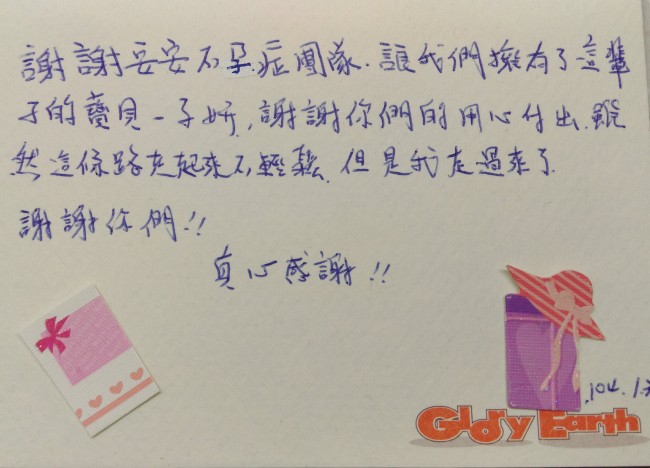 謝謝妥安不孕症團隊.讓我們擁有了這輩
子的寶貝-子妍,謝謝你們的用心付出.雖
然這條路走起來不輕鬆.但是我走過來了.
謝謝你們!!
真心感謝!!
104.1.
Glory Earth